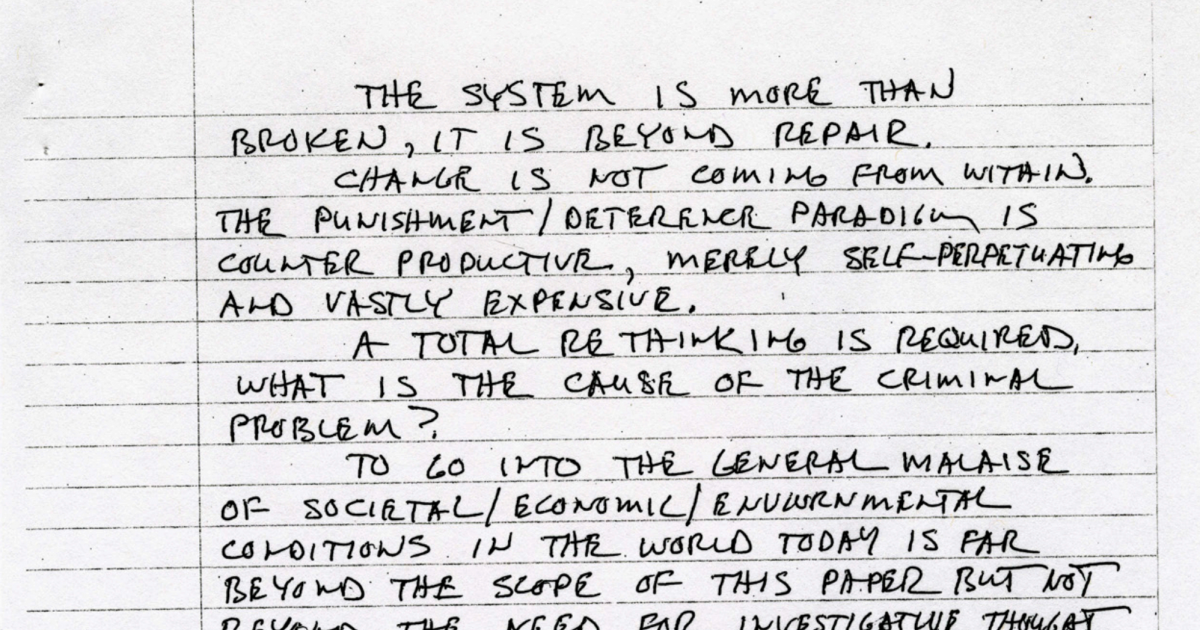 THE SYSTEM IS MORE THAN
BROKEN, IT IS BEYOND REPAIR.
CHANGE IS NOT COMING FROM WITHIN.
THE PUNISHMENT/DETERENCE PARADIGM IS
COUNTER PRODUCTIVE, MERELY SELF-PERPETUATING
AND VASTLY EXPENSIVE.
A TOTAL RETHINKING IS REQUIRED,
WHAT IS THE CAUSE OF THE CRIMINAL
PROBLEM?
TO GO INTO THE GENERAL MALAISE
OF SOCIETAL/ECONOMIC/ENVUORNMENTAL
CONDITIONS IN THE WORLD TODAY IS FAR
BEYOND THE SCOPE OF THIS PAPER BUT NOT
BEYOND THE NEED FOR INVESTIGATIVE THOUGHT